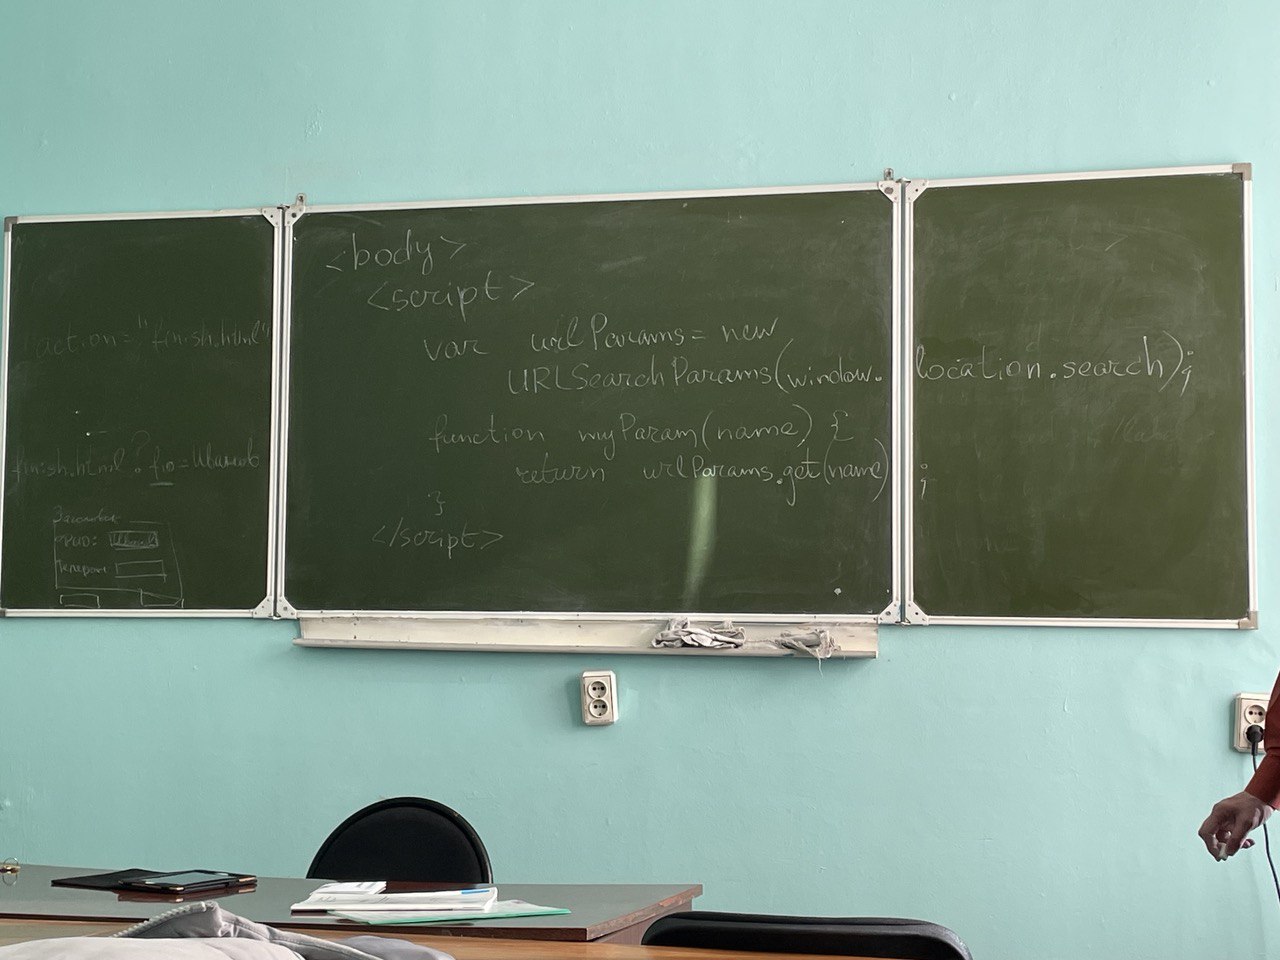 action="finish.html"
finish.html?fio=Иванов
ФИО:
Телефон:
<body>
<script>
var urlParams = new
URLSearchParams(window.location.search);
function myParam(name) {
return urlParams.get(name);
}
</script>